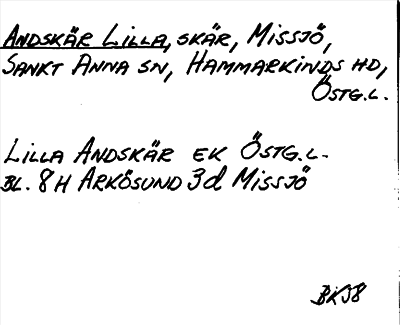 ANDSKÄR LILLA, SKÄR, MISSJÖ,
SANKT ANNA SN, HAMMARKINDS HD,
ÖSTG.L.
LILLA ANDSKÄR EK ÖSTG.L.
BL. 8H ARKÖSUND 3d MISSJÖ